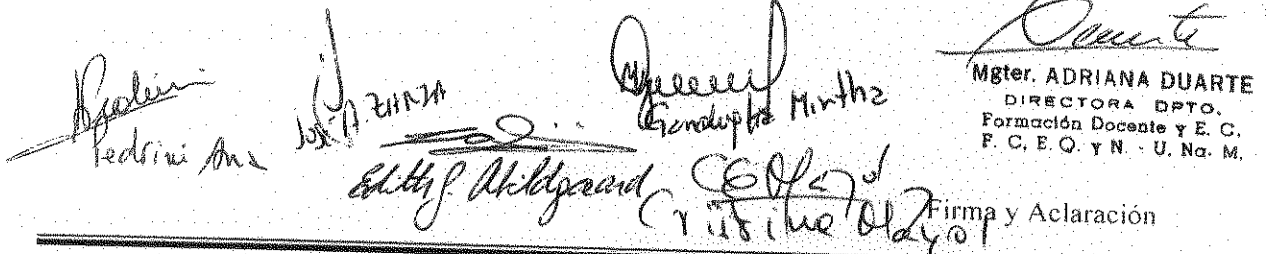 Pedrini Ana
José A. ZARZA
Edith J. Abildgaard
Mirtha
Cristina Olazo
Mgter. ADRIANA DUARTE
DIRECTORA DPTO.
Formación Docente y E. C.
F. C. E. Q. y N. - U. Na. M.
Firma y Aclaración